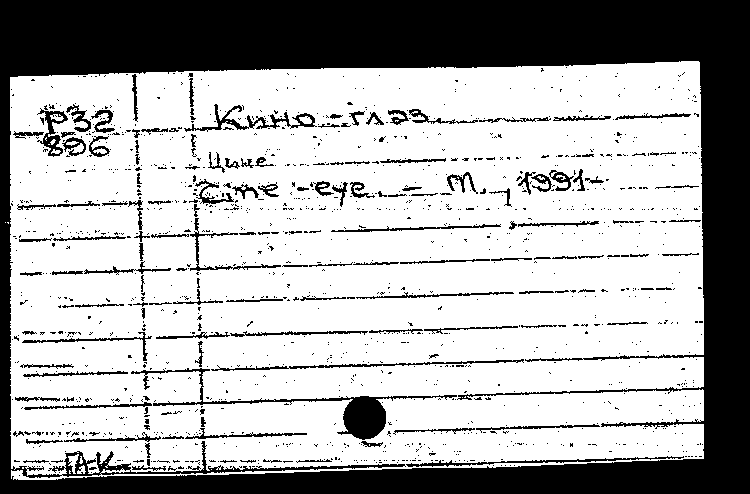 Р32 Кино-глаз.
896
Цине
Cine-eye. - М., 1991-
ГА-К